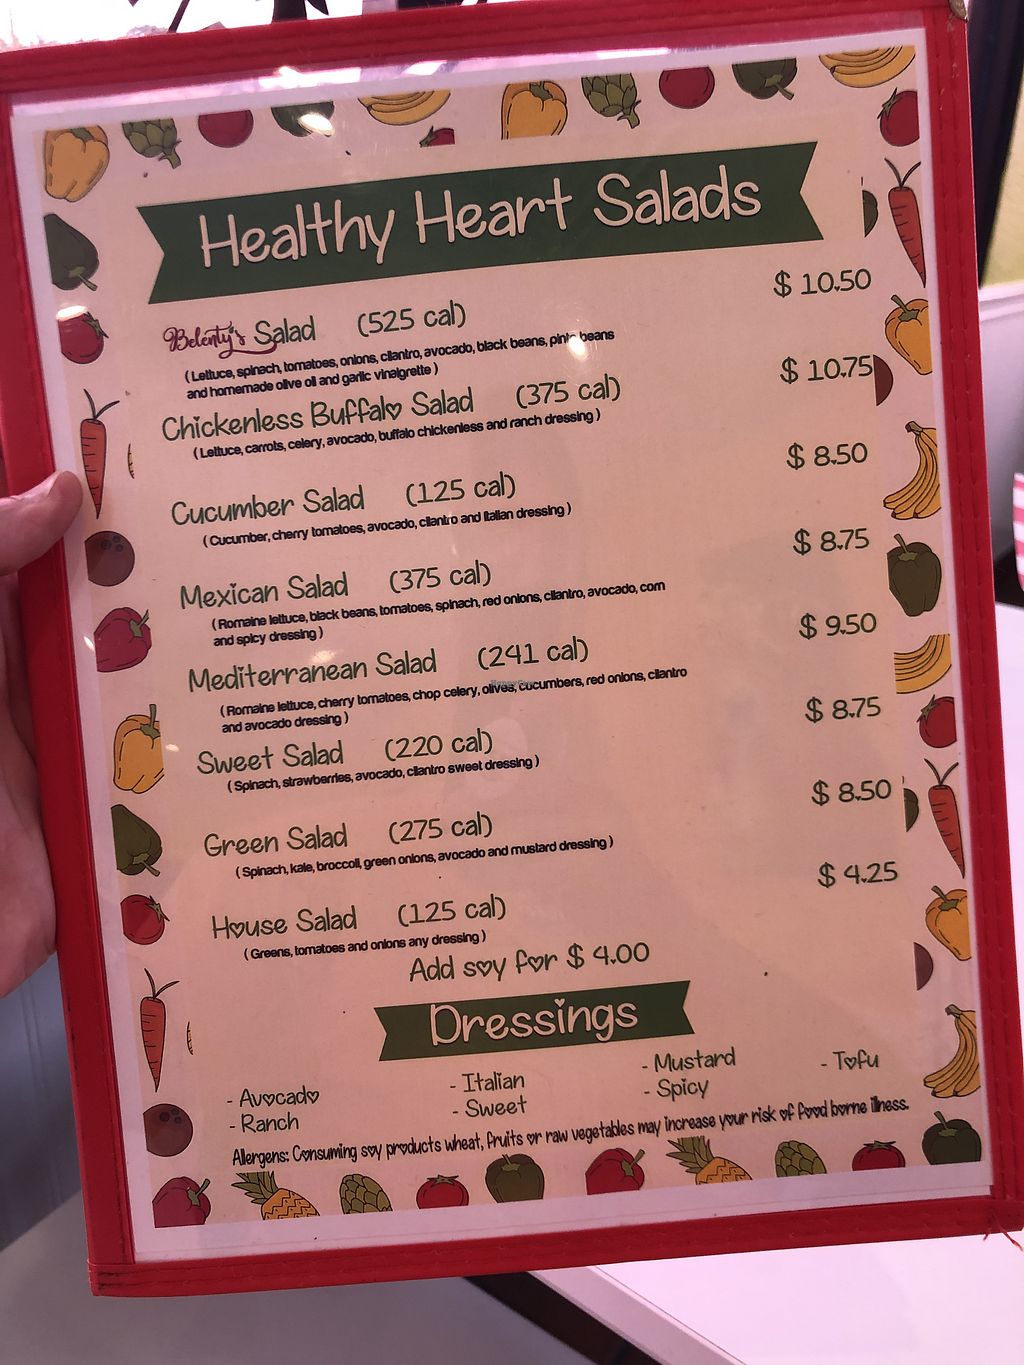 Healthy Heart Salads
Belenty's Salad (525 cal) $ 10.50
( Lettuce, spinach, tomatoes, onions, cilantro, avocado, black beans, pinto beans
and homemade olive oil and garlic vinaigrette )
Chickenless Buffalo Salad (375 cal) $ 10.75
( Lettuce, carrots, celery, avocado, buffalo chickenless and ranch dressing )
Cucumber Salad (125 cal) $ 8.50
( Cucumber, cherry tomatoes, avocado, cilantro and Italian dressing )
Mexican Salad (375 cal) $ 8.75
( Romaine lettuce, black beans, tomatoes, spinach, red onions, cilantro, avocado, corn
and spicy dressing )
Mediterranean Salad (241 cal) $ 9.50
( Romaine lettuce, cherry tomatoes, chop celery, olives, cucumbers, red onions, cilantro
and avocado dressing )
Sweet Salad (220 cal) $ 8.75
( Spinach, strawberries, avocado, cilantro sweet dressing )
Green Salad (275 cal) $ 8.50
( Spinach, kale, broccoli, green onions, avocado and mustard dressing )
House Salad (125 cal) $ 4.25
( Greens, tomatoes and onions any dressing )
Add soy for $ 4.00
Dressings
- Avocado - Italian - Mustard - Tofu
- Ranch - Sweet - Spicy
Allergens: Consuming soy products wheat, fruits or raw vegetables may increase your risk of food borne illness.